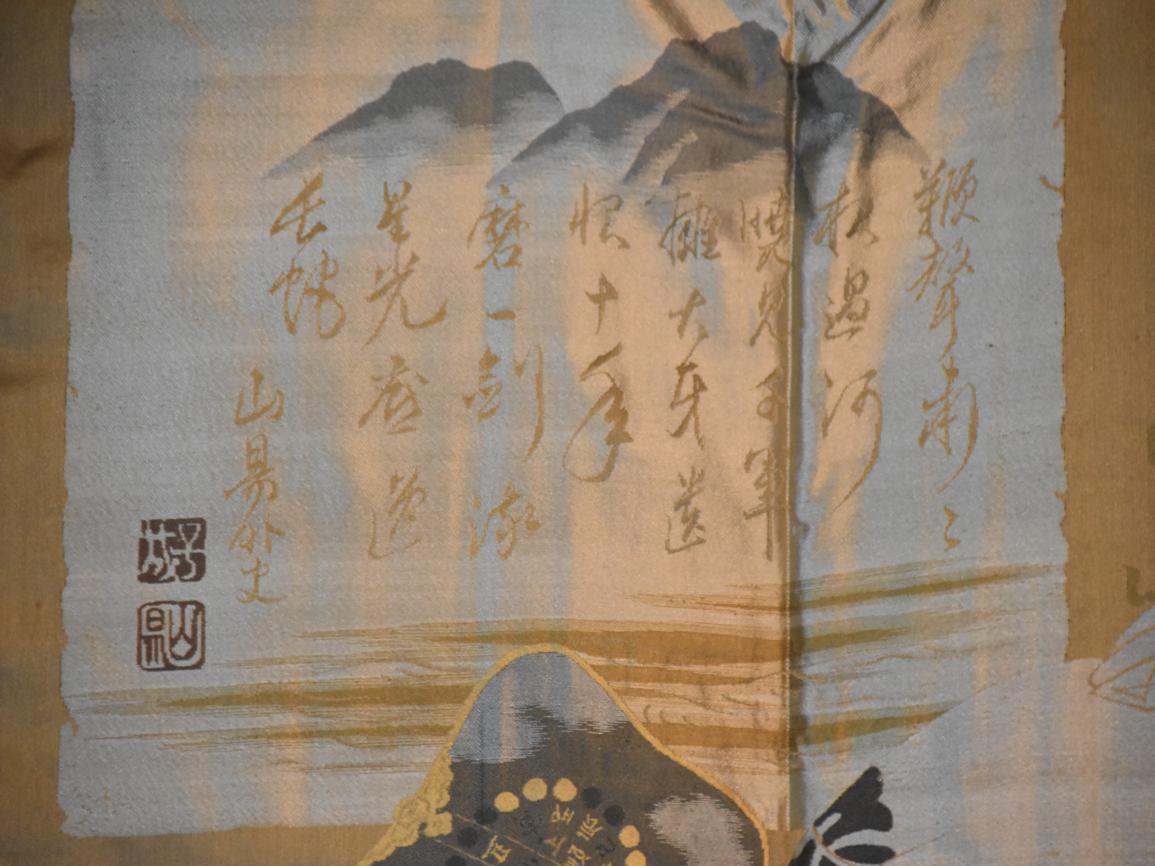 鞭聲肅〻
夜過河
暁見千軍
擁大牙遺
恨十年
磨一剣流
星光底逸
長蛇
山昜外史